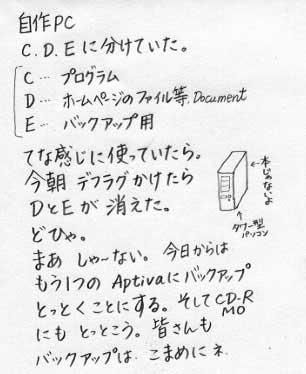 自作PC
C.D.Eに分けていた。
C… プログラム
D… ホームページのファイル等.Document
E… バックアップ用
てな感じに使っていたら。
今朝 デフラグかけたら
DとEが消えた。
どひゃ。
まあ しゃ〜ない。今日からは
もう1つの Aptivaにバックアップ
とっとくことにする。そしてCD-R
MO
にも とっとこう。皆さんも
バックアップは こまめにネ
本じゃないよ
タワー型
パソコン